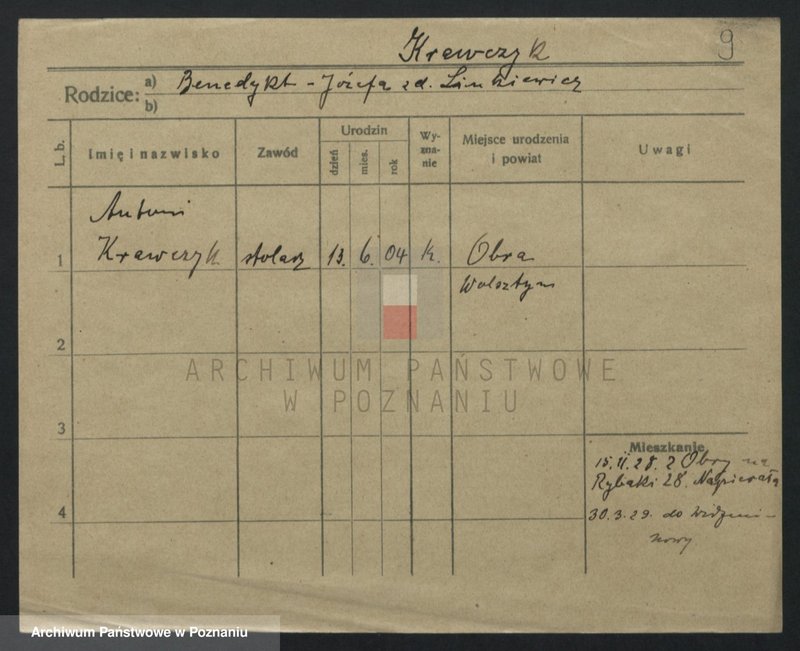 Krawczyk
9
Rodzice: a) Benedykt - Józefa zd. Linkiewicz
b)
L. b.
Imię i nazwisko
Zawód
Urodzin
dzień
mies.
rok
Wy-
zna-
nie
Miejsce urodzenia
i powiat
Uwagi
Antoni
1 Krawczyk stolarz 13. 6. 04 K. Obra
Wolsztyn
2
ARCHIWUM PAŃSTWOWE
W POZNANIU
3
Mieszkanie
15.11.28. z Obry na
Rybaki 28. Napierała
4
30.3.29. do
Archiwum Państwowe w Poznaniu